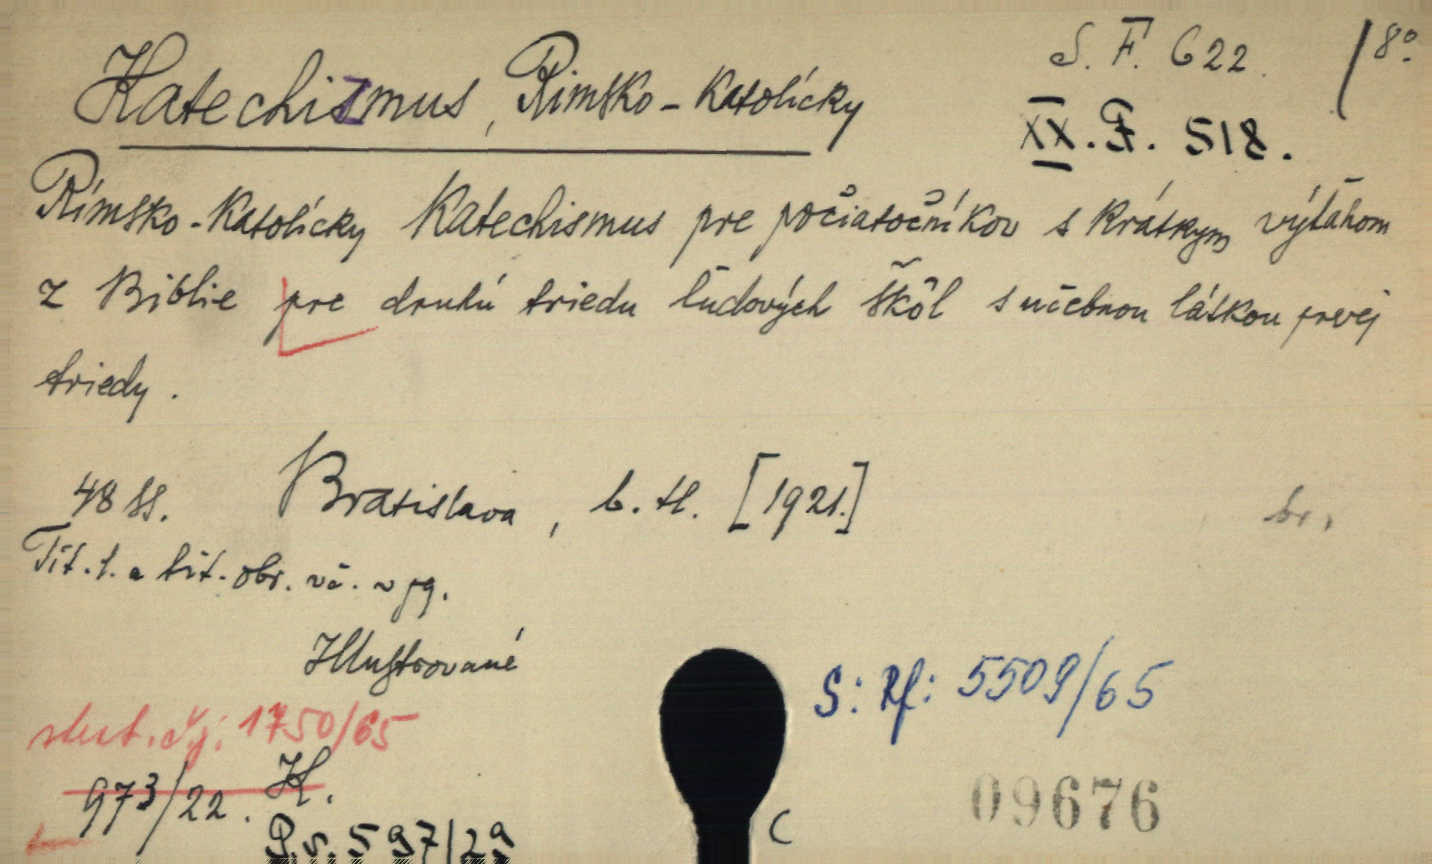 Katechizmus, Rímsko-Katolícky
S. F. 622. / 8°.
XX. F. 518.
Rímsko-Katolícky Katechismus pre počiatočníkov s krátkym výťahom
z Biblie pre druhú triedu ľudových škôl s učebnou látkou prvej
triedy.
48 ss. Bratislava, b. tl. [1921.] br.
Tit. l. a tit. obr. vč. v pg.
Illustrované
S: Rf: 5509/65
skut. čj: 1750/65
973/22. K.
09676
P.v. 597/29
C